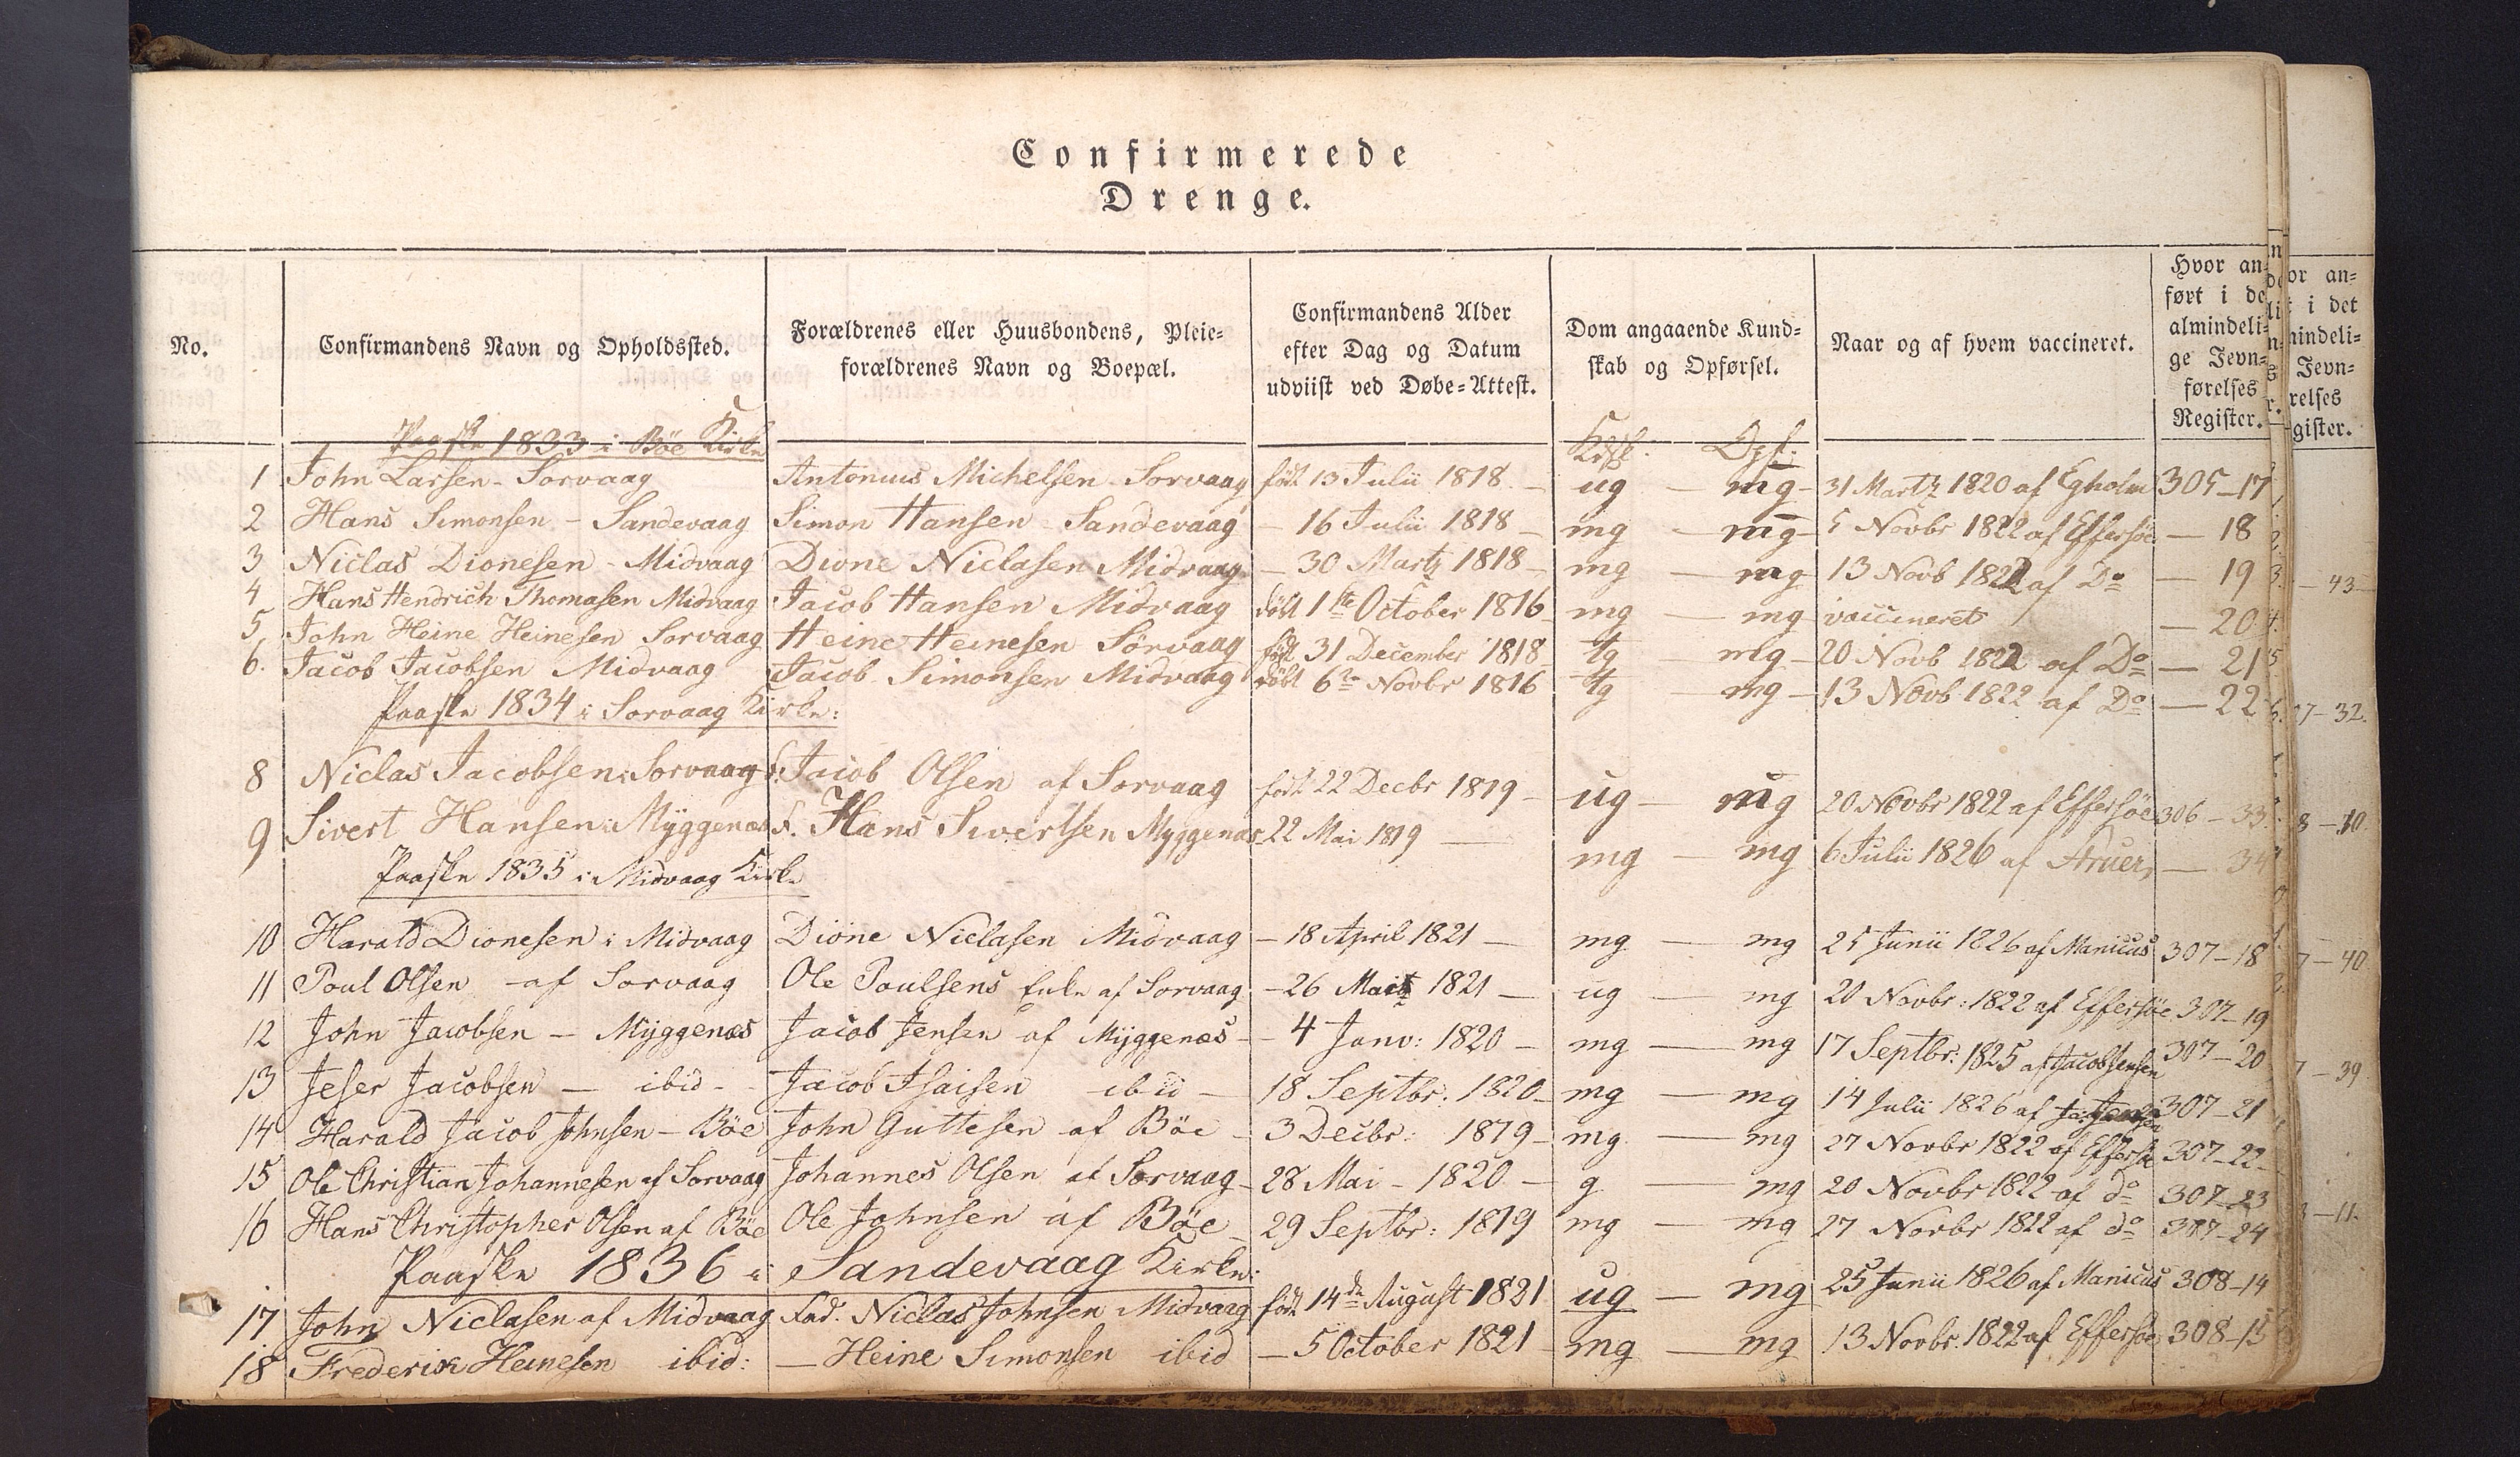 Confirmerede
Drenge.
No. Confirmandens Navn og Opholdssted. Forældrenes eller Huusbondens, Pleieforældrenes Navn og Boepæl. Confirmandens Alder efter Dag og Datum udviist ved Døbe-Attest. Dom angaaende Kundskab og Opførsel. Naar og af hvem vaccineret. Hvor anført i de almindelige Jevnførelses Register.
Paaske 1833 i Böe Kirke Kdsk: Opf:
1 John Larsen - Sorvaag Antonius Michelsen Sorvaag født 13 Julii 1818 ug mg 31 Martz 1820 af Egholm 305-17
2 Hans Simonsen - Sandevaag Simon Hansen Sandevaag - 16 Julii 1818 mg mg 5 Novbr 1822 af Effersöe - 18
3 Niclas Dionesen - Midvaag Dione Niclasen Midvaag - 30 Martz 1818 mg mg 13 Novb 1822 af Do - 19
4 Hans Hendrich Thomasen Midvaag Jacob Hansen Midvaag døbt 1ste October 1816 mg - mg vaccineret - 20
5 John Heine Heinesen Sorvaag Heine Heinesen Sörvaag født 31 December 1818 tg mg 20 Novb 1822 af Do - 21
6. Jacob Jacobsen Midvaag Jacob Simonsen Midvaag døbt 6te Novbr 1816 tg mg 13 Novb 1822 af Do - 22
Paaske 1834 i Sorvaag Kirke:
8 Niclas Jacobsen i Sorvaag F: Jacob Olsen af Sorvaag født 22 Decbr 1819 ug mg 20 Novbr 1822 af Effersöe 306-33
9 Sivert Hansen i Myggenæs F. Hans Sivertsen Myggenæs 22 Mai 1819 mg - mg 6 Julii 1826 af - 34
Paaske 1835 i Midvaag Kirke
10 Harald Dionesen i Midvaag Dione Niclasen Midvaag - 18 April 1821 mg mg 25 Junii 1826 af Manicus 307-18
11 Poul Olsen - af Sorvaag Ole Poulsens Enke af Sorvaag - 26 1821 ug mg 20 Novbr: 1822 af Effersöe 307-19
12 John Jacobsen - Myggenæs Jacob Jensen af Myggenæs - 4 Janv: 1820 mg mg 17 Septbr: 1825 af Jacob Jensen 307-20
13 Jeser Jacobsen - ibid - Jacob Isaisen ibid 18 Septbr. 1820 mg mg 14 Julii 1826 af Ja: Jensen 307-21
14 Harald Jacob Johnsen - Böe John Guttesen af Böe 3 Decbr: 1819 mg mg 27 Novbr 1822 af Effersöe 307-22
15 Ole Christian Johannesen af Sorvaag Johannes Olsen af Sorvaag 28 Mai - 1820 g mg 20 Novbr 1822 af do 307-23
16 Hans Christopher Olsen af Böe Ole Johnsen af Böe 29 Septbr: 1819 mg mg 27 Novbr 1822 af do 307-24
Paaske 1836 i Sandevaag Kirke:
17 John Niclasen af Midvaag Fad. Niclas Johnsen Midvaag født 14de August 1821 ug - mg 25 Junii 1826 af Manicus 308-14
18 Frederik Heinesen ibid: - Heine Simonsen ibid - 5 October 1821 mg mg 13 Novbr. 1822 af Effersöe 308-15